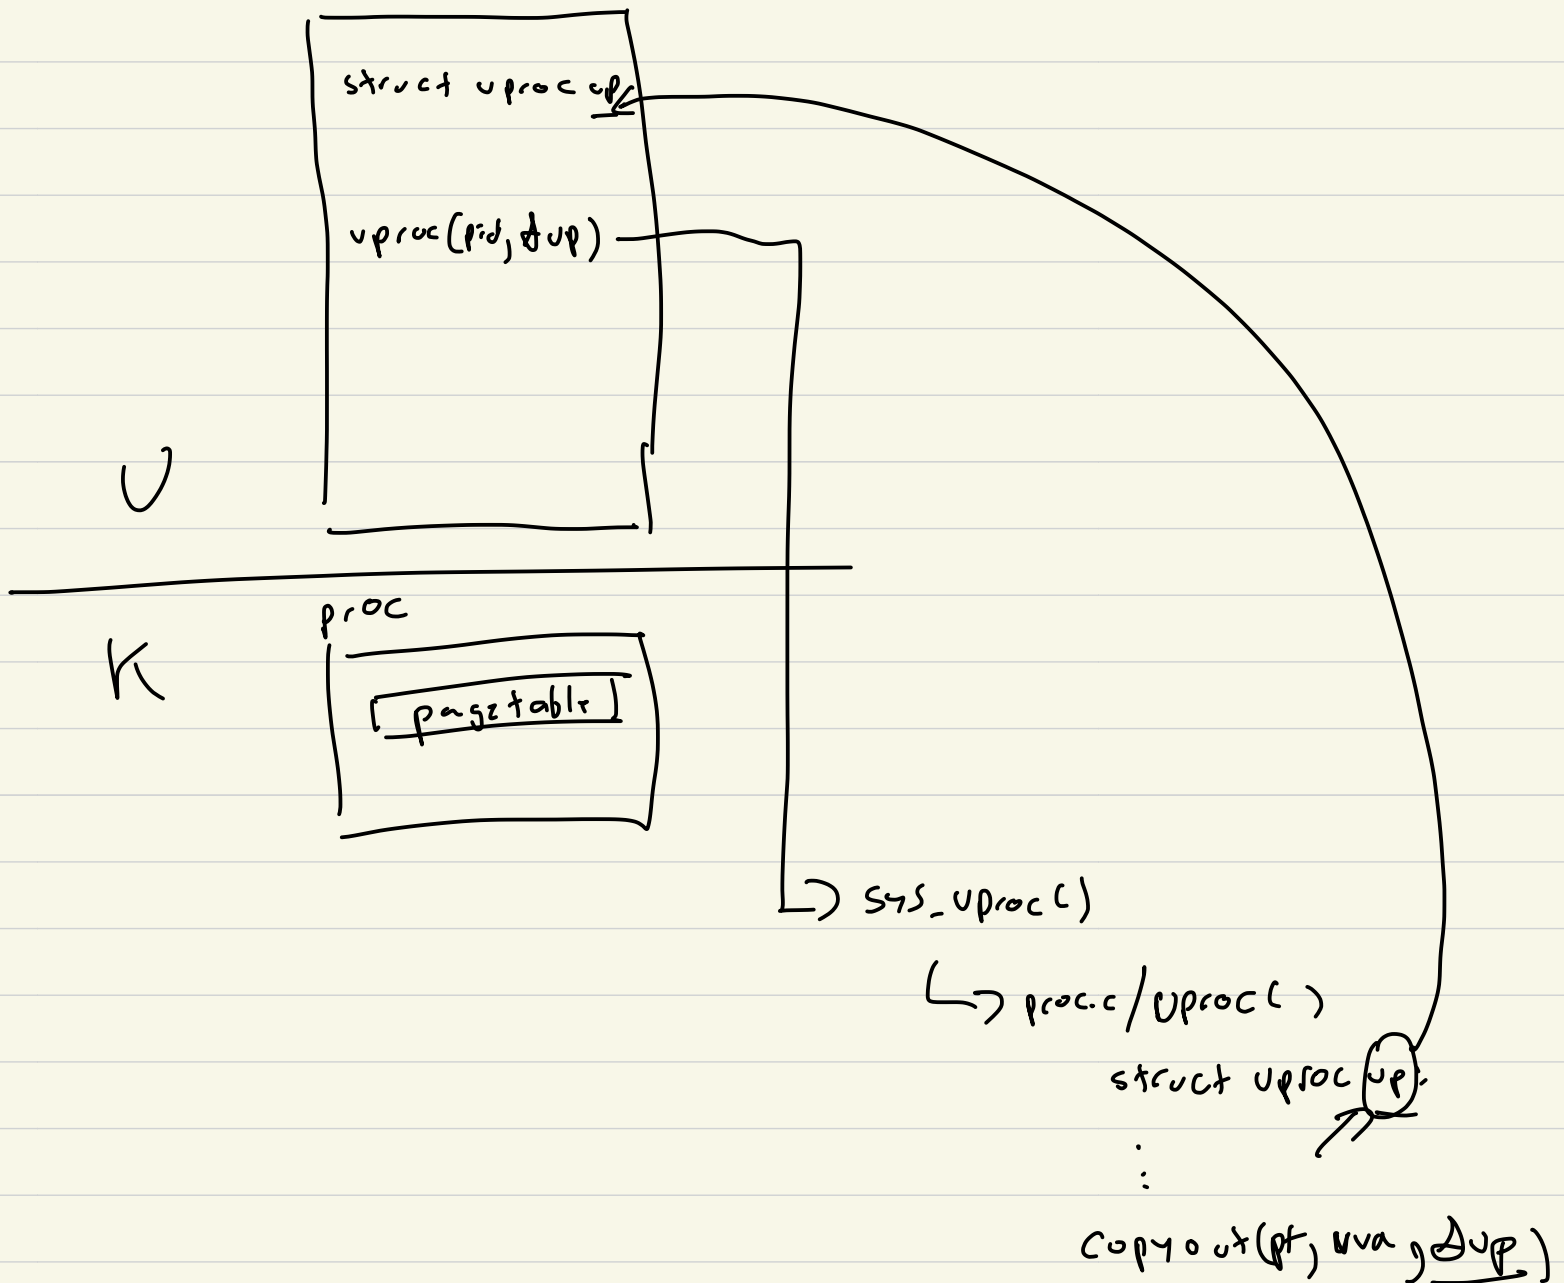 struct uproc up
uproc(pid, &up)
U
K
proc
pagetable
sys_uproc()
proc.c/uproc( )
struct uproc up;
⋮
copyout(pt, uva, &up)